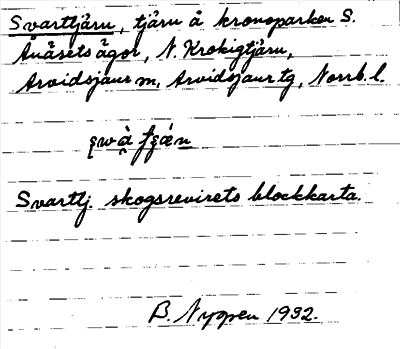 Svarttjärn, tjärn å kronoparken S.
Ånåsets ägor, N. Krokigtjärn,
Arvidsjaur m, Arvidsjaur tg, Norrb. l.
Svarttj. skogsrevirets blockkarta.
B. Nygren 1932.